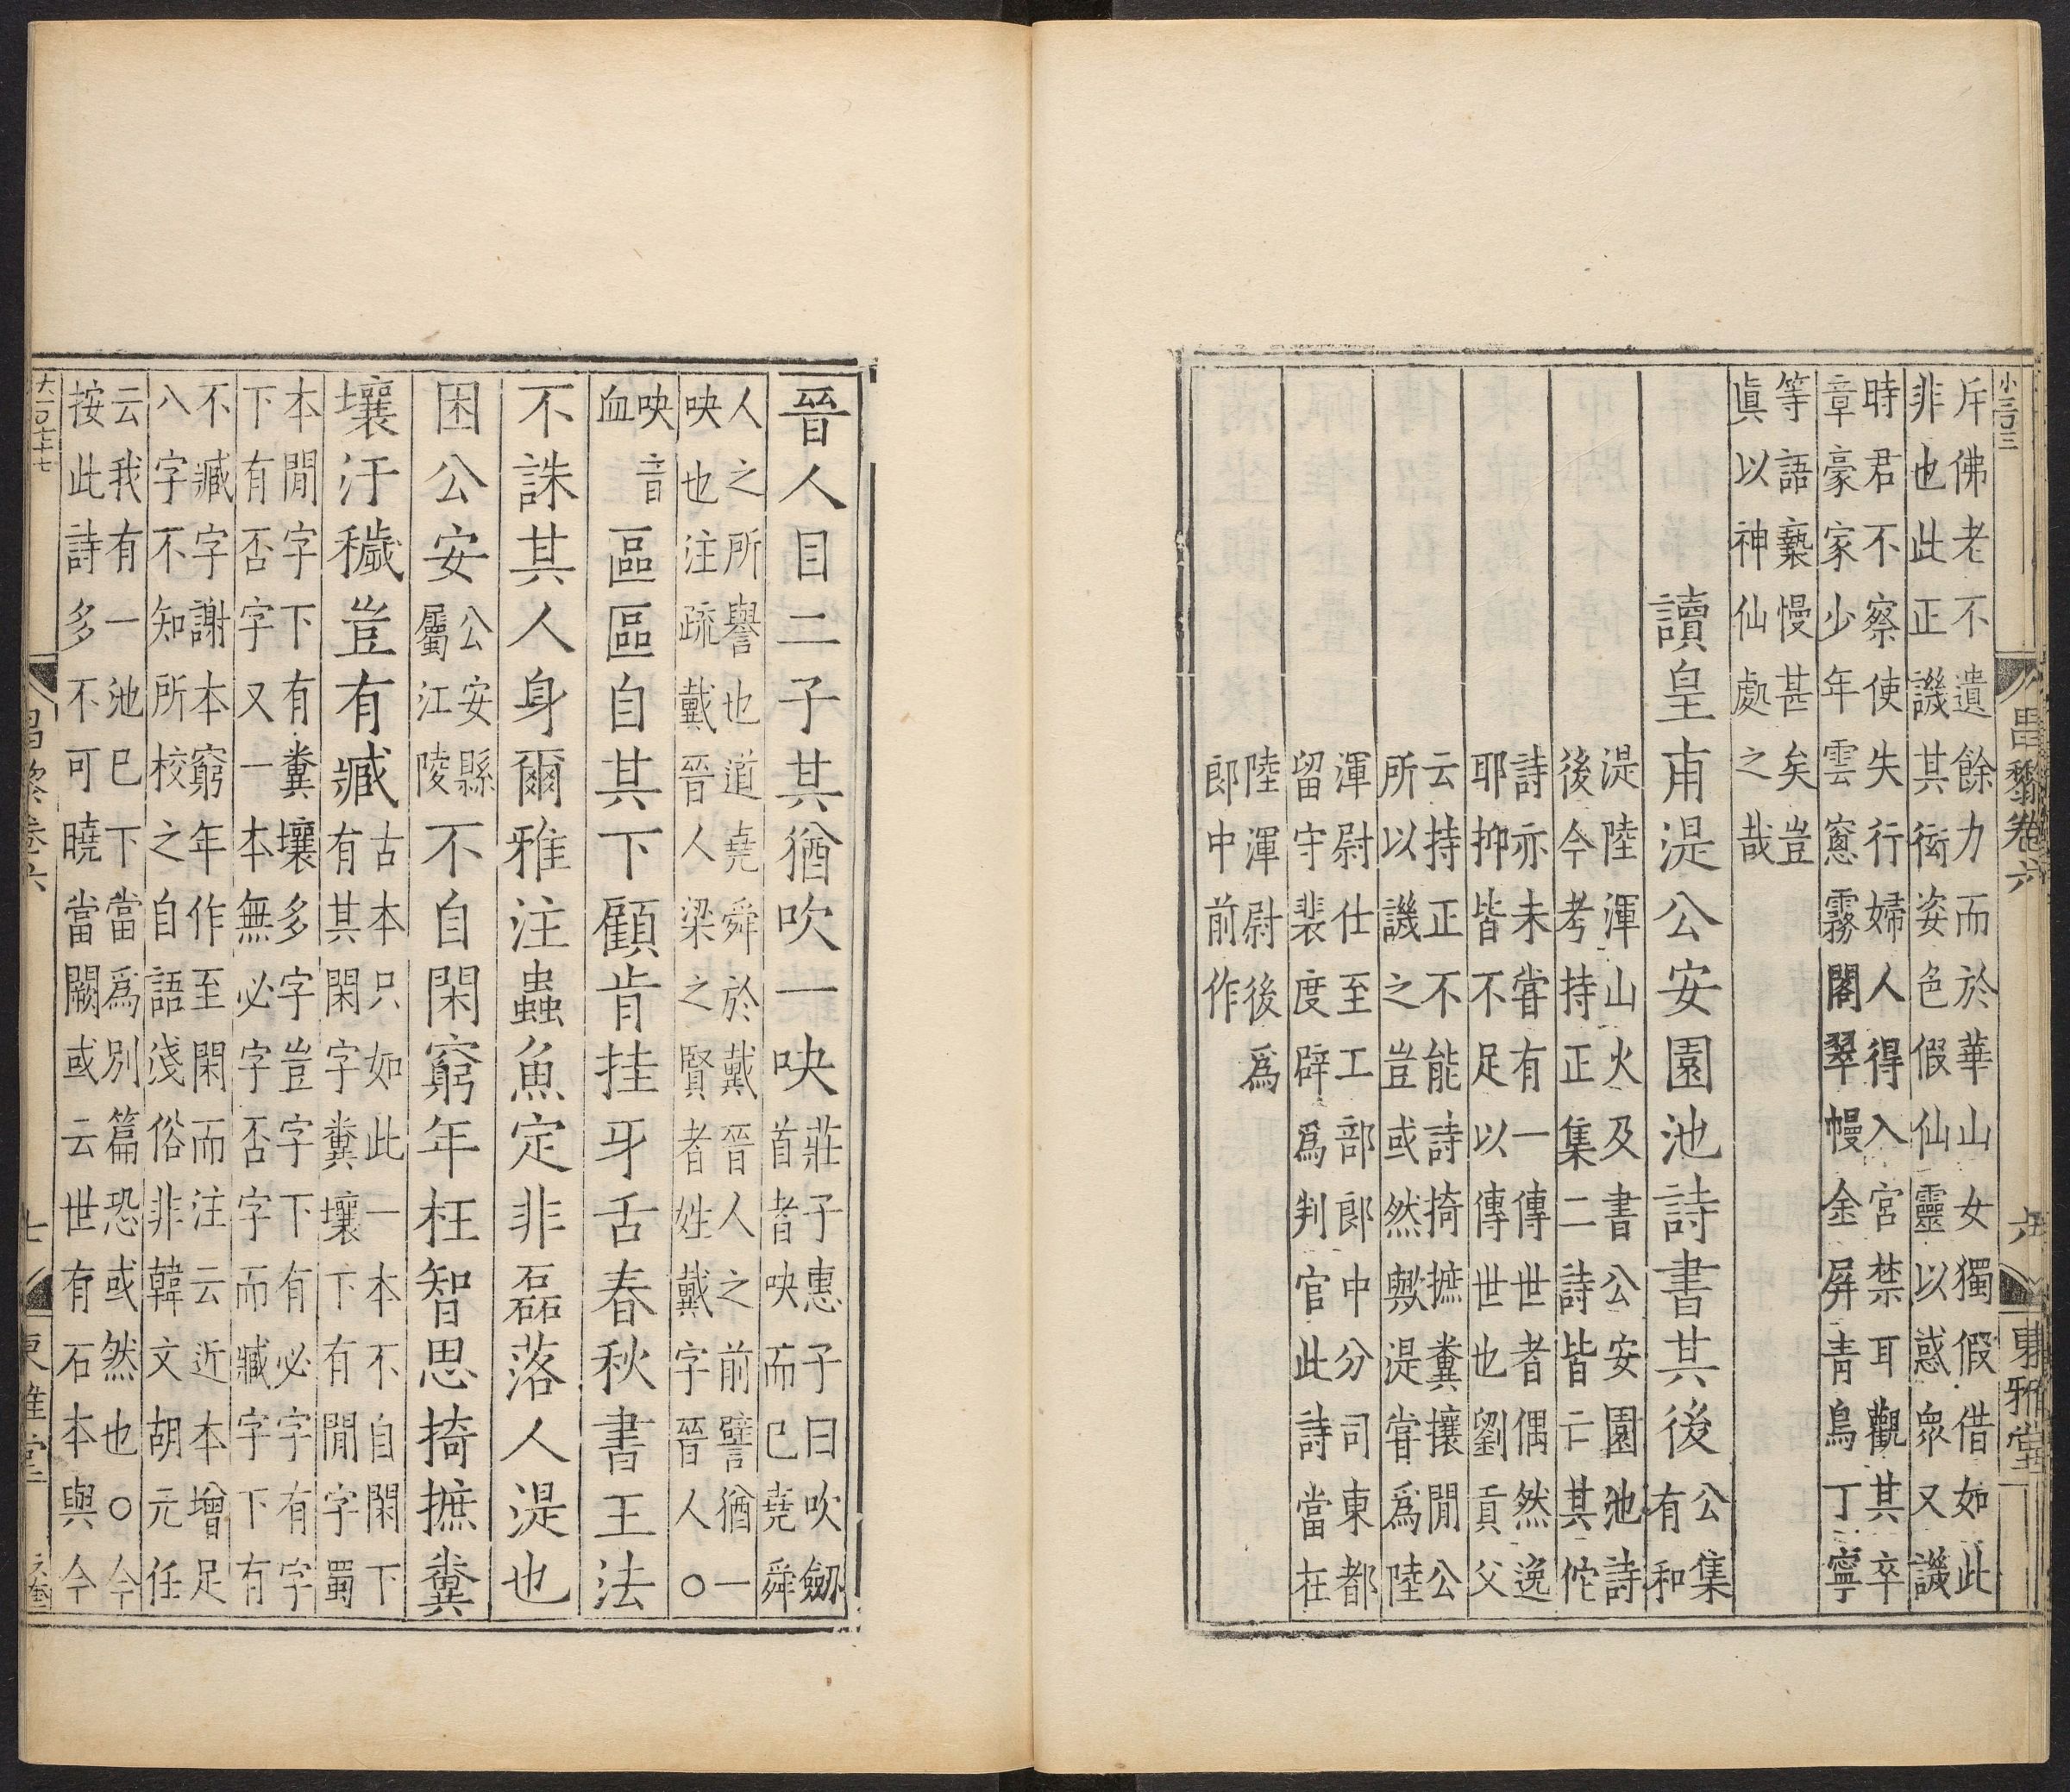 小三百三
昌黎卷六
六
東雅堂
斥佛老不遺餘力而於華山女獨假借如此
非也此正譏其衒姿色假仙靈以惑衆又譏
時君不察使失行婦人得入宮禁耳觀其卒
章豪家少年雲窻霧閣翠幔金屏青鳥丁寧
等語褻慢甚矣豈
眞以神仙處之哉
讀皇甫湜公安園池詩書其後
公集
有和
湜陸渾山火及書公安園池詩
後今考持正集二詩皆亡其佗
詩亦未甞有一傳世者偶然逸
耶抑皆不足以傳世也劉貢父
云持正不能詩掎摭糞攘閒公
所以譏之豈或然歟湜甞爲陸
渾尉仕至工部郎中分司東都
留守裴度辟爲判官此詩當在
陸渾尉後爲
郎中前作
晉人目二子其猶吹一吷
莊子惠子曰吹劒
首者吷而已堯舜
人之所譽也道堯舜於戴晉人之前譬猶一
吷也注疏戴晉人梁之賢者姓戴字晉人○
吷音
血
區區自其下顧肯挂牙舌春秋書王法
不誅其人身爾雅注蟲魚定非磊落人湜也
困公安
公安縣
屬江陵
不自閑窮年枉智思掎摭糞
壤汙穢豈有臧
古本只如此一本不自閑下
有其閑字糞壤下有閒字蜀
本閒字下有糞壤多字豈字下有必字有字
下有否字又一本無必字否字而臧字下有
不臧字謝本窮年作至閑而注云近本增足
八字不知所校之自語淺俗非韓文胡元任
云我有一池已下當爲別篇恐或然也○今
按此詩多不可曉當闕或云世有石本與今
大一百二十七
昌黎卷六
七
東雅堂